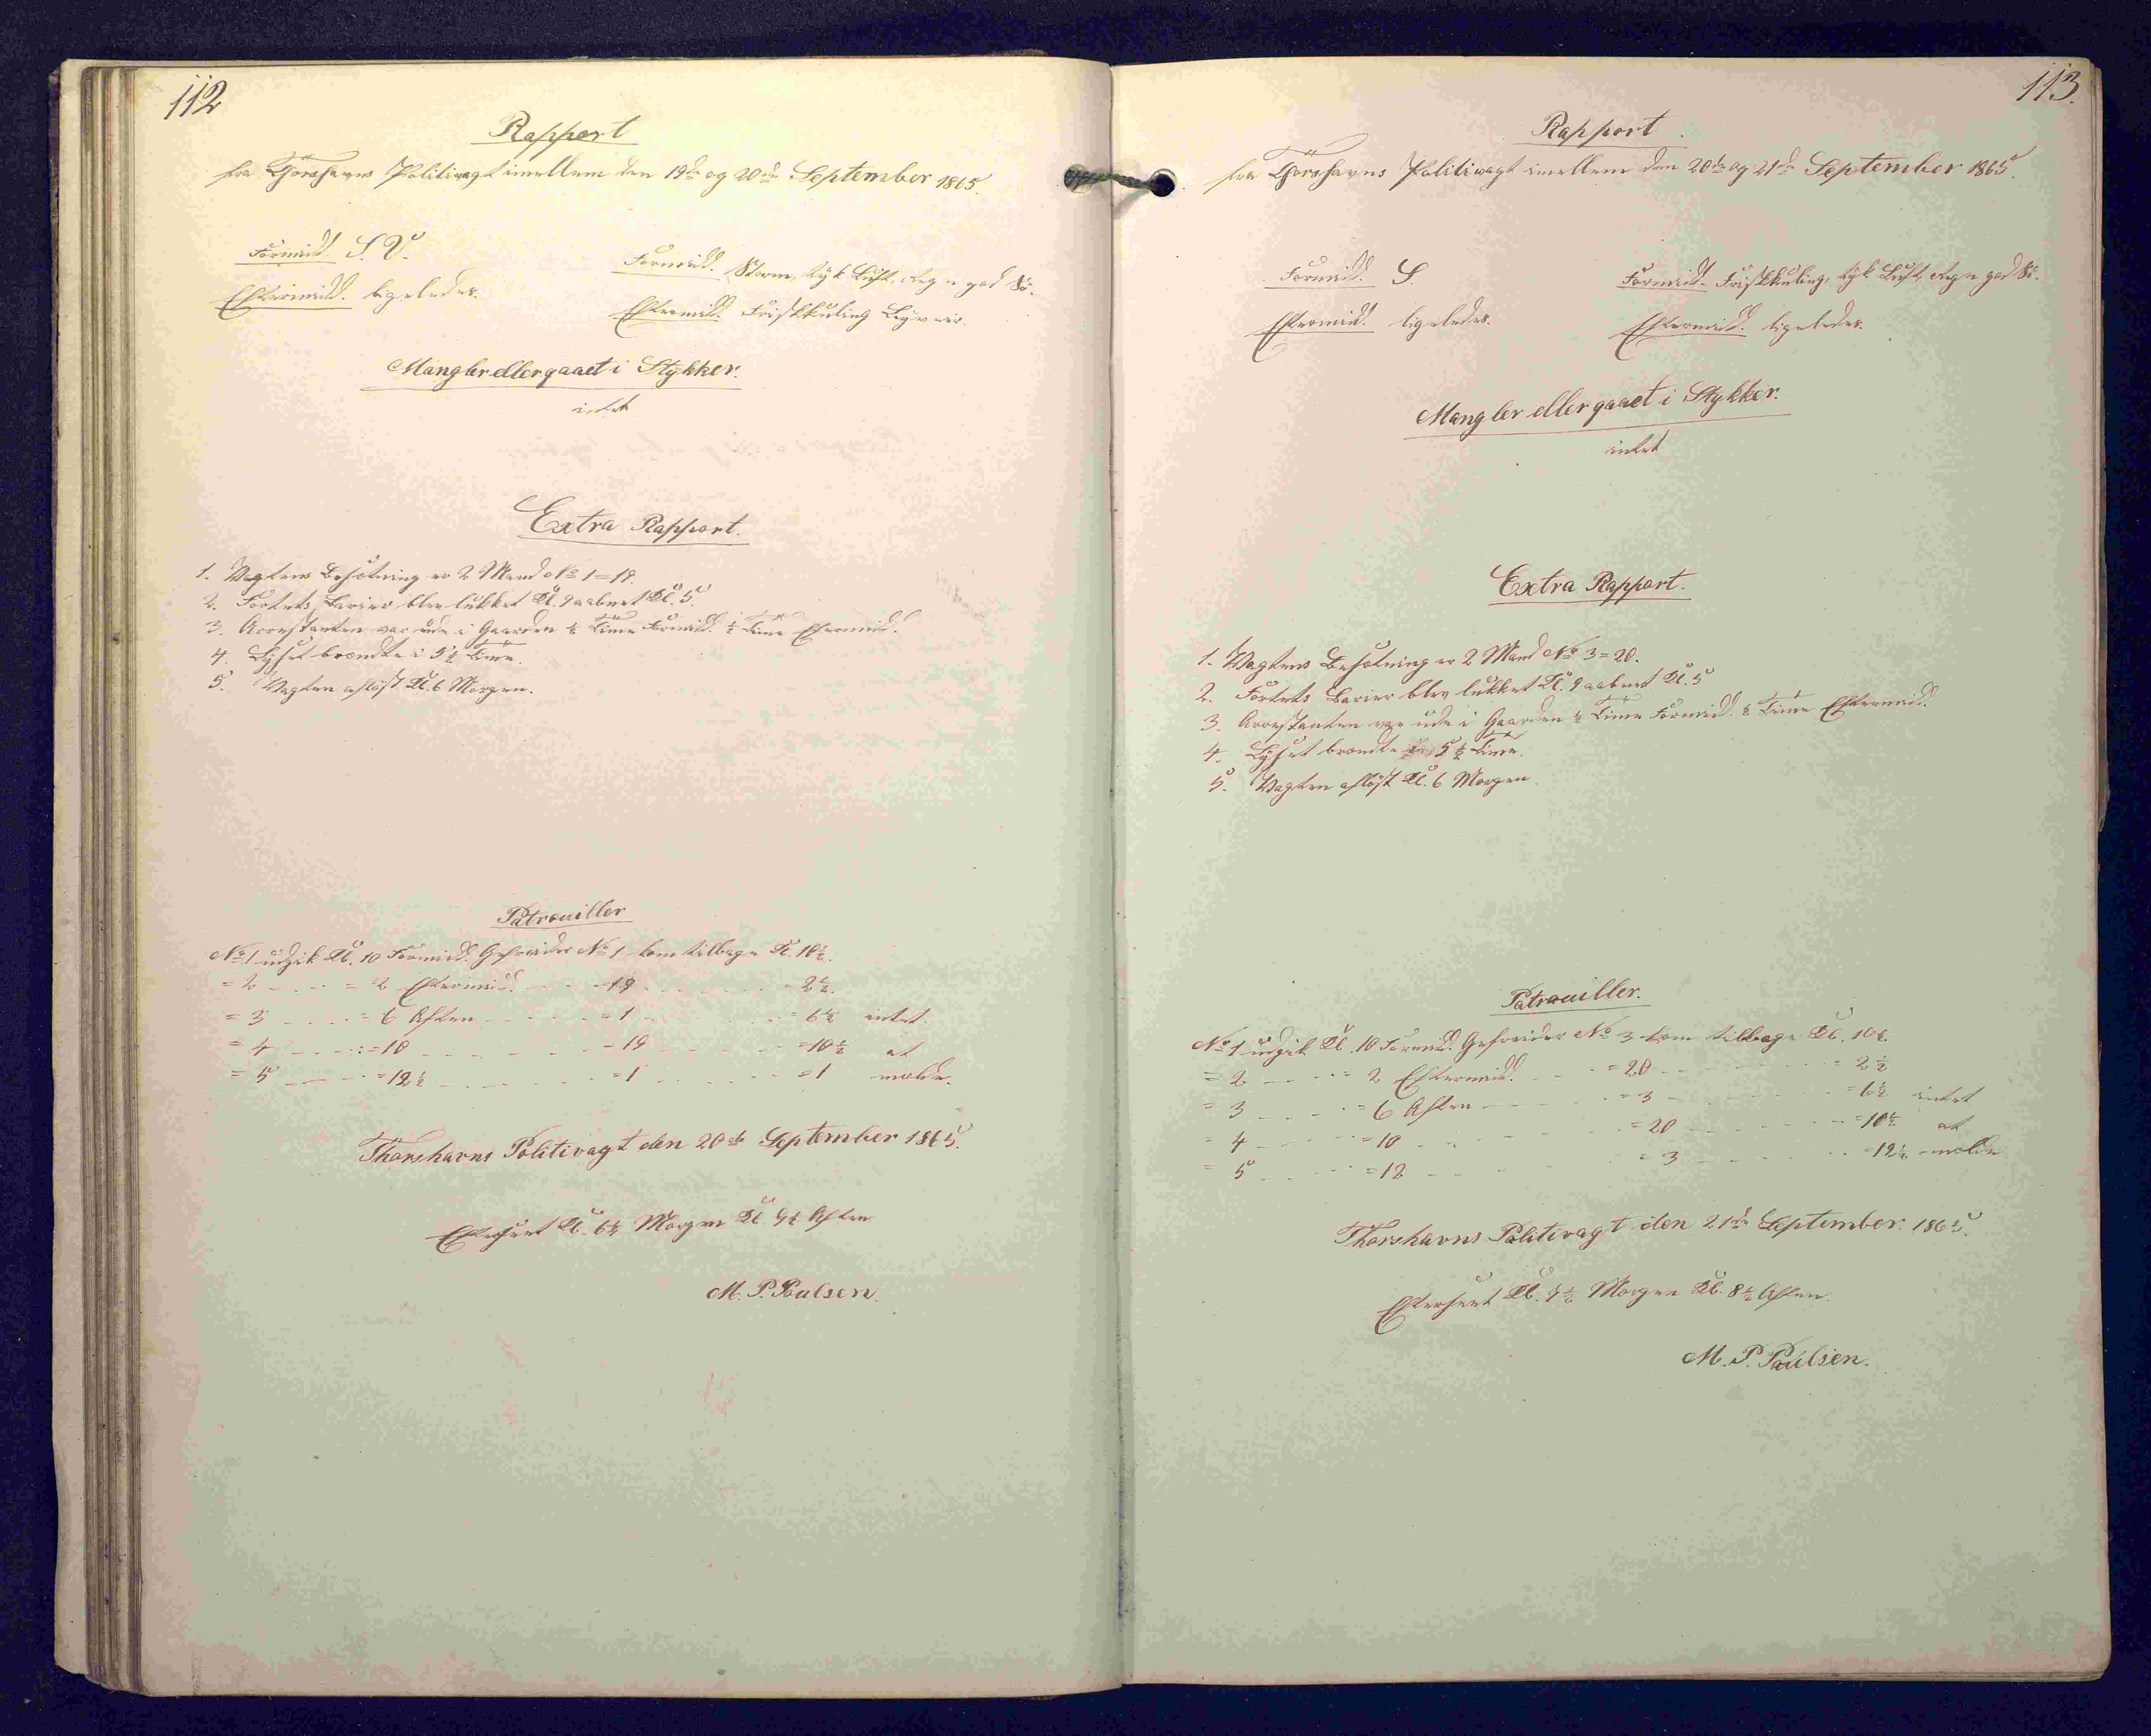 112
Rapport
fra Thorshavns Politivagt imellem den 19de og 20de September 1865.
Formidd. S.V.
Formidd. Storm, tyk Luft, Regn god Sö.
Eftermidd. ligeledes.
Eftermidd. Friskkuling Bÿveir.
Mangler eller gaaet i Stykker.
intet
Extra Rapport.
1. Vagtens Besætning er 2 Mand No 1 = 19.
2. Fortets Barier blev lukket Kl. 9 aabnet Kl. 5.
3. Arrestanten var ude i Gaarden ½ Time Formidd. ½ Time Eftermidd.
4. Lyset brændte i 5½ Time.
5. Vagten aflöst Kl. 6 Morgen.
Patrouiller
No 1 udgik Kl. 10 Formidd. Gefreider No 1 kom tilbage Kl. 10½.
= 2 - - - = 2 Eftermidd. - - = 19 - - - - = 2½.
= 3 - - - = 6 Aften - - - = 1 - - - = 6½ intet
= 4 - - - = 10 - - - - = 19 - - - = 10½ at
= 5 - - - = 12½ - - - - = 1 - - - = 1 melde.
Thorshavns Politivagt den 20de September 1865.
Efterseet Kl. 6½ Morgen Kl. 9½ Aften
M. P. Poulsen.
113.
Rapport
fra Thorshavns Politivagt imellem den 20de og 21de September 1865.
Formidd. S.
Formidd. Friskkuling, tyk Luft, Regn god Sö.
Eftermidd. ligeledes.
Eftermidd. ligeledes.
Mangler eller gaaet i Stykker.
intet
Extra Rapport.
1. Vagtens Besætning er 2 Mand No 3 = 20.
2. Fortets Barier blev lukket Kl. 9 aabnet Kl. 5
3. Arrestanten var ude i Gaarden ½ Time Formidd. ½ Time Eftermidd.
4. Lyset brændte i 5½ Time.
5. Vagten aflöst Kl. 6 Morgen
Patrouiller.
No 1 udgik Kl. 10 Formidd. Gefreider No 3 kom tilbage Kl. 10½
= 2 - - - = 2 Eftermidd. - - = 20 - - - - = 2½
= 3 - - - = 6 Aften - - - = 3 - - - - = 6½ intet
= 4 - - - = 10 - - - - = 20 - - - - = 10½ at
= 5 - - - = 12 - - - - = 3 - - - - = 12½ melde
Thorshavns Politivagt den 21de September. 1865.
Efterseet Kl. 7½ Morgen Kl. 8½ Aften.
M. P. Poulsen.